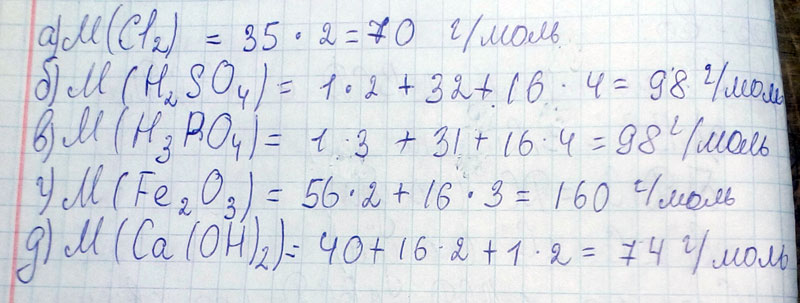 а) M(Cl₂) = 35 · 2 = 70 г/моль
б) M(H₂SO₄) = 1 · 2 + 32 + 16 · 4 = 98 г/моль
в) M(H₃PO₄) = 1 · 3 + 31 + 16 · 4 = 98 г/моль
г) M(Fe₂O₃) = 56 · 2 + 16 · 3 = 160 г/моль
д) M(Ca(OH)₂) = 40 + 16 · 2 + 1 · 2 = 74 г/моль